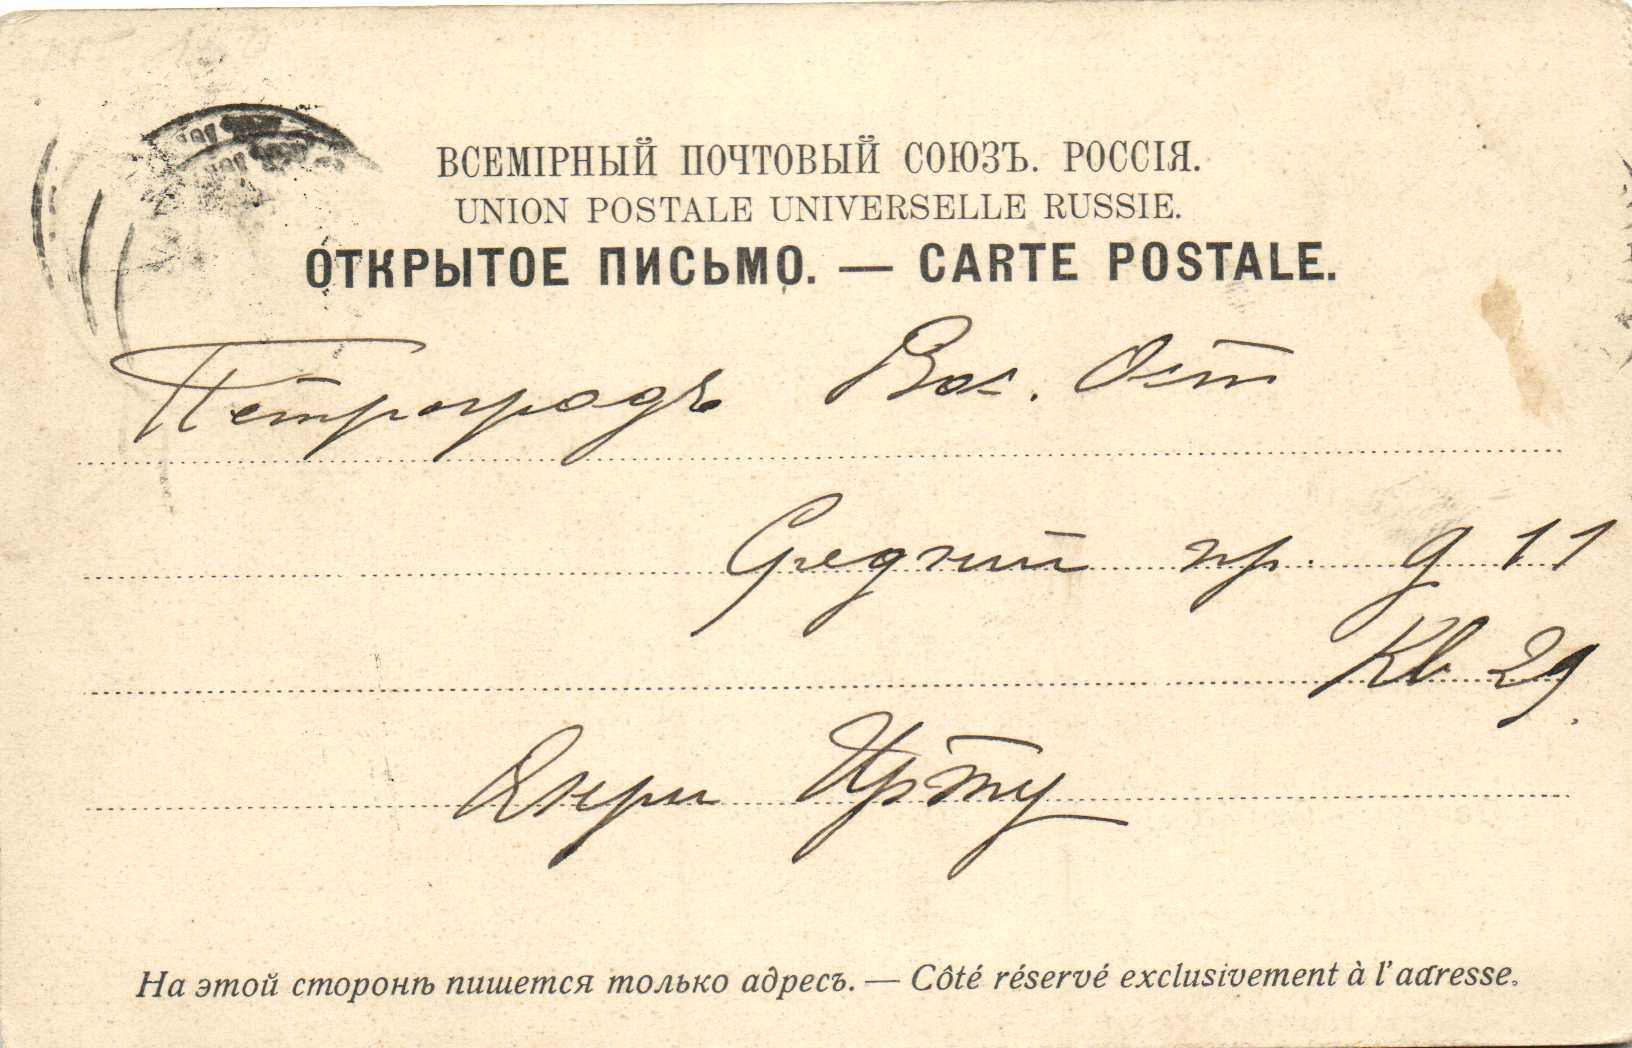 ВСЕМІРНЫЙ ПОЧТОВЫЙ СОЮЗЪ. РОССІЯ.
UNION POSTALE UNIVERSELLE RUSSIE.
ОТКРЫТОЕ ПИСЬМО. — CARTE POSTALE.
Петроградъ Вас. Ост
Средний пр. д 11
Кв 29.
Нa этой сторонѣ пишется только адресъ. — Côté réservé exclusivement à l'adresse.